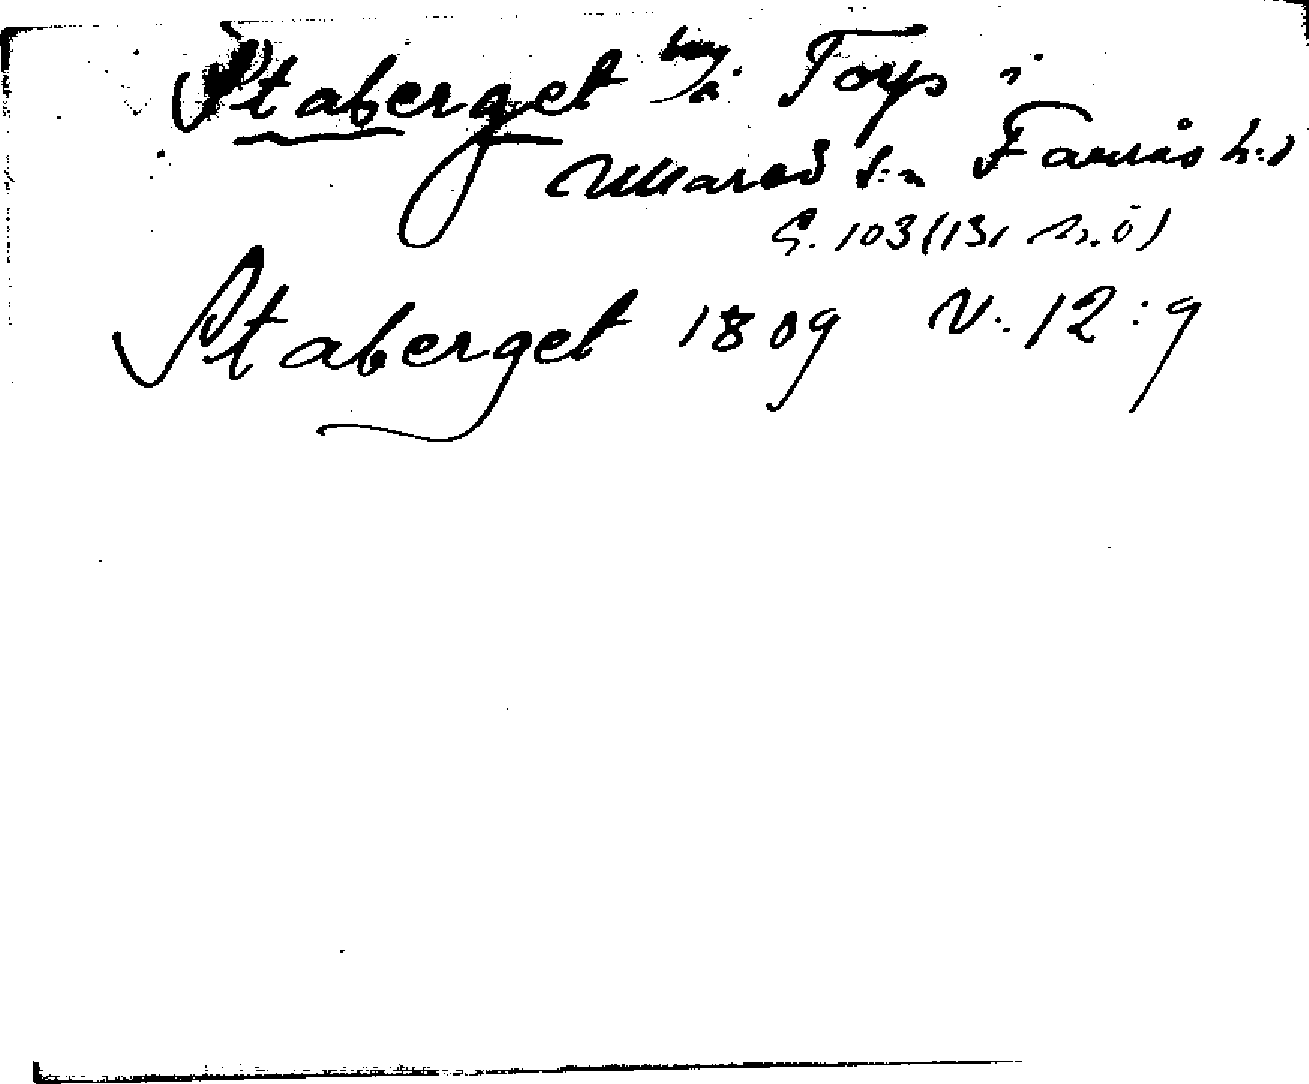 Staberget by/å Torp i
Ullared s:n Faurås h:d
S. 103 (131 n. ö)
Staberget 1809 V. 12:9